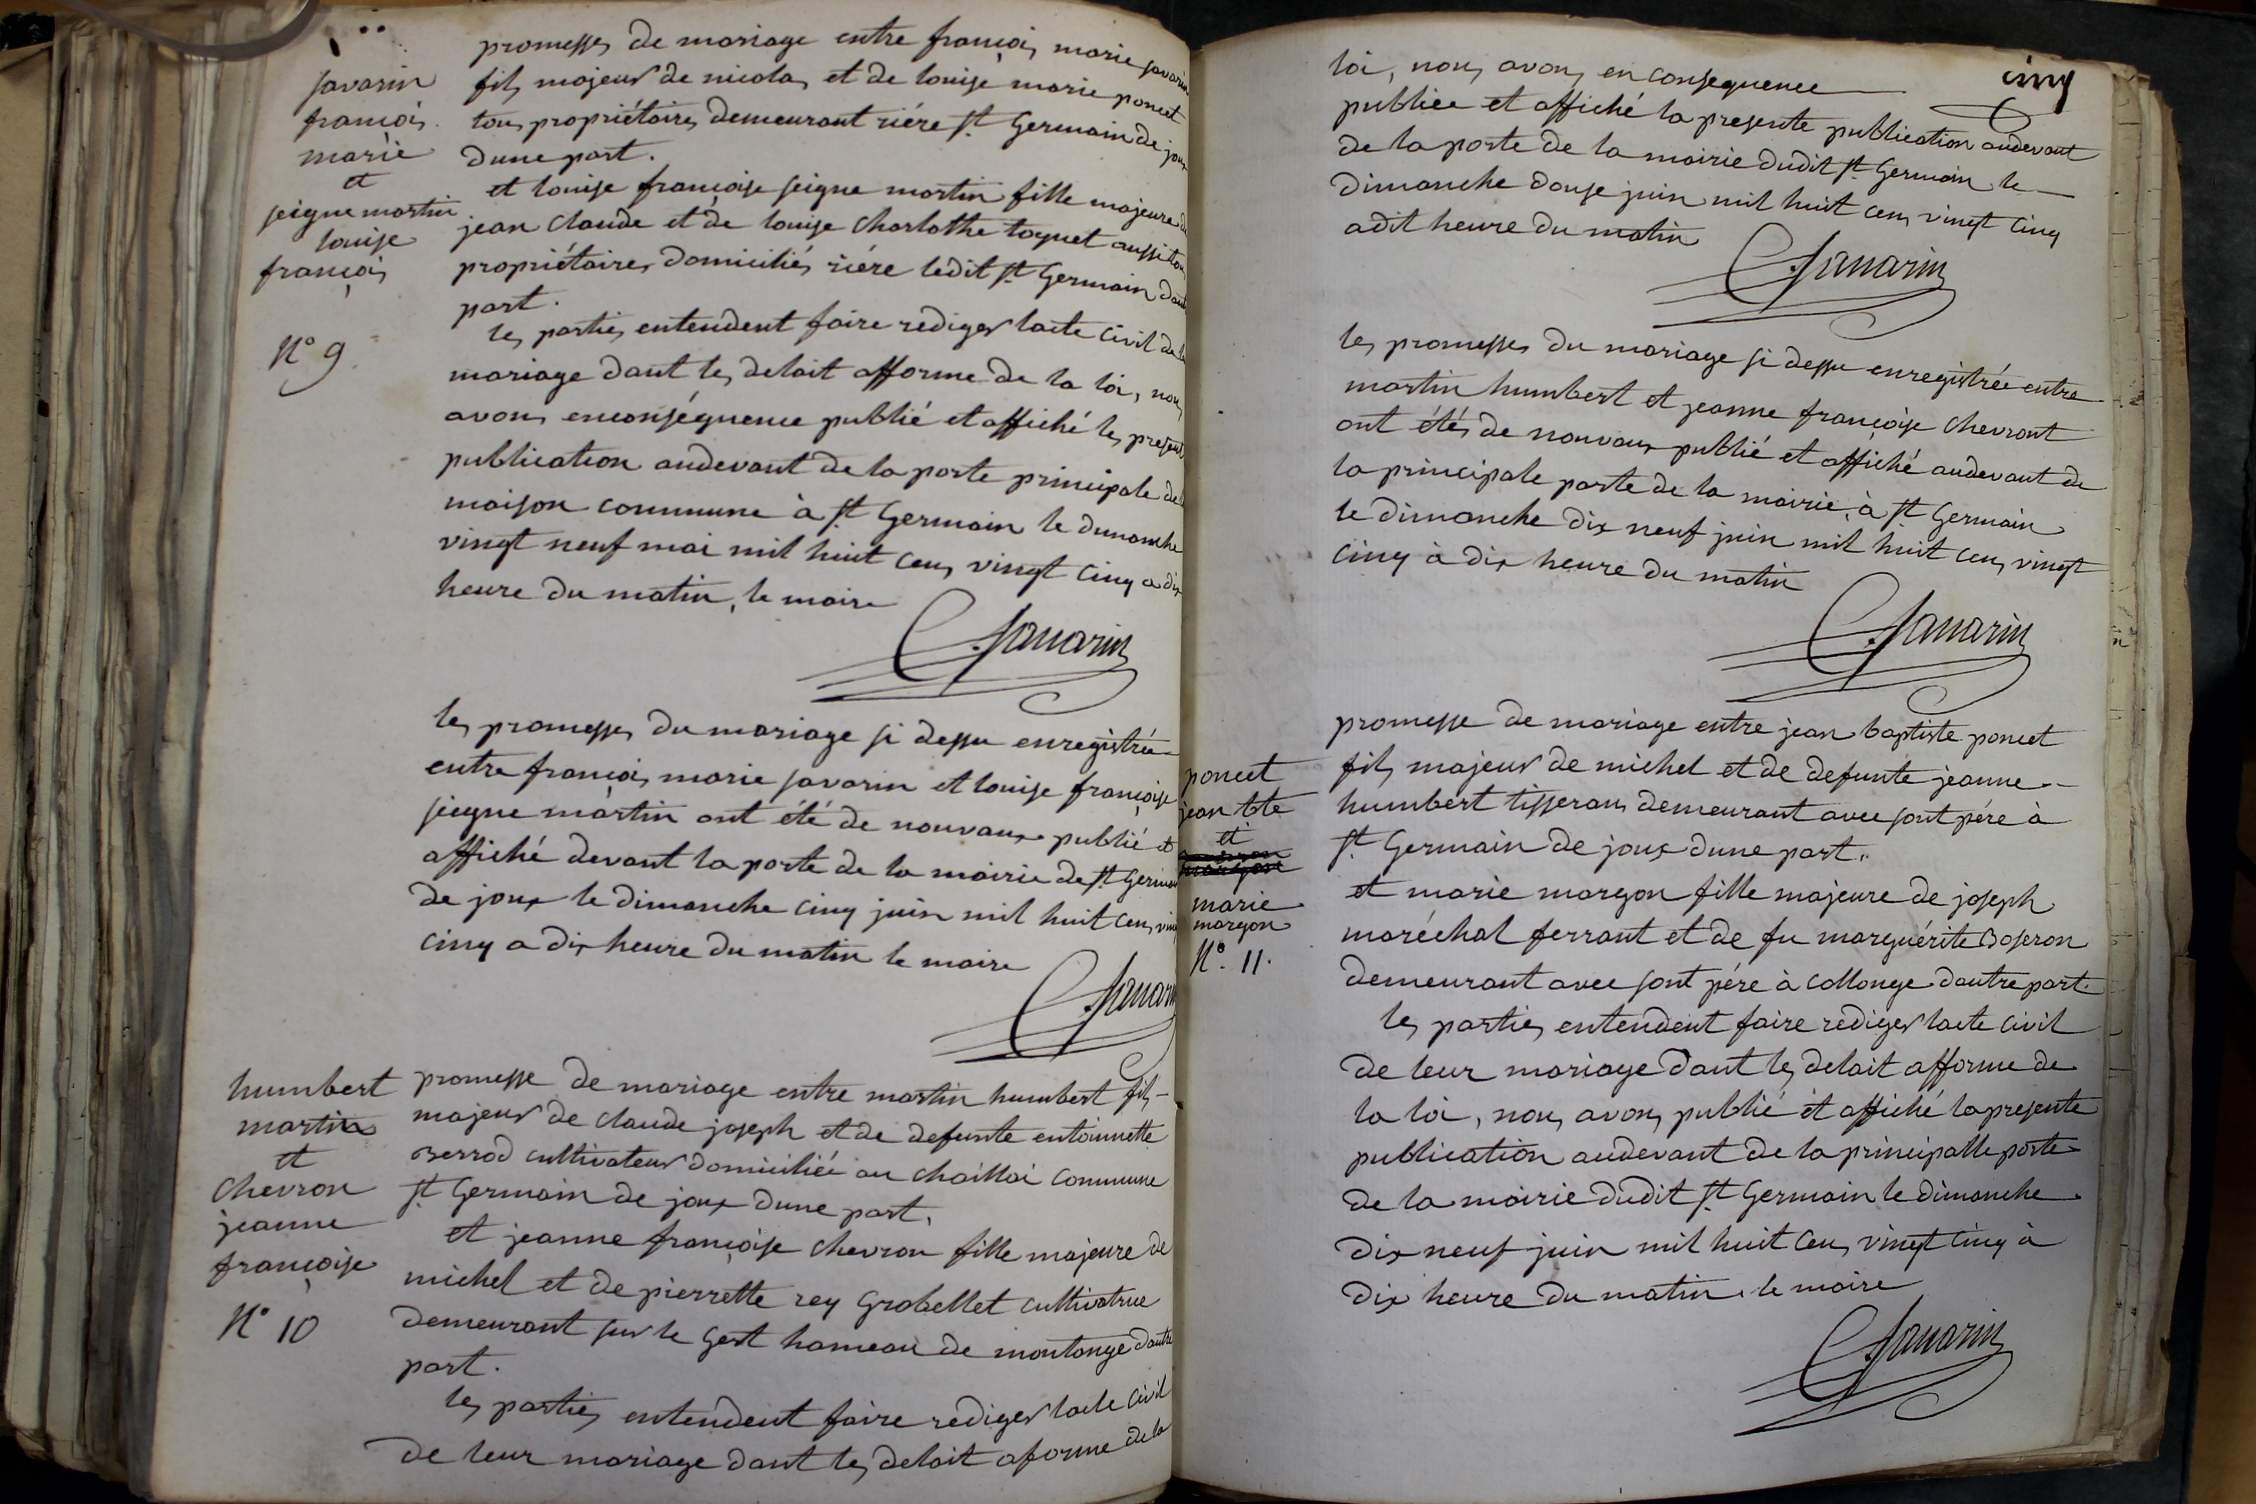 savarin
françois
marie
et
seigne martin
louise
françois
N° 9
promesses de mariage entre françois marie savarin
fils majeur de nicolas et de louise marie poncet
tous propriétaires demeurant riére st Germain de joux
dune part.
et louise françoise seigne martin fille majeure de
jean claude et de louise charlothe toquet aussi tous
propriétaires domiciliés riére ledit st Germain dautre
part.
les parties entendent faire rediger lacte civil de le
mariage dant les delait afforme de la loi, nous
avons enconséquence publié et affiché les presents
publication audevant de la porte principale de la
maison commune à st Germain le dimanche
vingt neuf mai mil huit cens vingt cinq a dix
heure du matin, le maire
C. Savarin
les promesses du mariage si dessu enregistrée
entre françois marie savarin et louise françoise
seigne martin ont été de nouvaux publié et
affiché devant la porte de la mairie de st Germain
de joux le dimanche cinq juin mil huit cens vingt
cinq a dix heure du matin le maire
C. Savarin
humbert
martin
et
Chevron
jeanne
françoise
N° 10
promesse de mariage entre martin humbert fils
majeur de claude joseph et de defunte entoinnette
Berrod cultivateur domiciliée au chaillai commune
st Germain de joux dune part,
et jeanne françoise chevron fille majeure de
michel et de pierrette rey Grobellet cultivatrice
demeurant sur le Gert hameau de montange dautre
part.
les parties entendent faire rediger lacte civil
de leur mariage dant les delait aforme de la
cinq
loi, nous avons en consequence
publiée et affiché la presente publication audevant
de la porte de la mairie dudit st Germain le
dimanche douse juin mil huit cens vingt cinq
adit heure du matin
C. Savarin
les promesses du mariage si dessu enregistrée entre
martin humbert et jeanne françoise Chevront
ont étés de nouvaux publié et affiché audevant de
la principale porte de la mairie à st Germain
le dimanche dix neuf juin mil huit cens vingt
cinq à dix heure du matin
C. Savarin
poncet
jean bte
et
marie
margon
N°. 11.
promesse de mariage entre jean baptiste poncet
fils majeur de michel et de defunte jeanne
humbert tisserans demeurant avec sont pére à
st Germain de joux dune part.
et marie margon fille majeure de joseph
maréchal ferrant et de fu marguérite Boseron
demeurant avec sont pére à collonge dautre part.
les parties entendent faire rediger lacte civil
de leur mariage dant les delait afforme de
la loi, nous avons publié et affiché la presente
publication audevant de la principalle porte
de la mairie dudit st Germain le dimanche
dix neuf juin mil huit cens vingt cinq à
dix heure du matin, le maire
C. Savarin